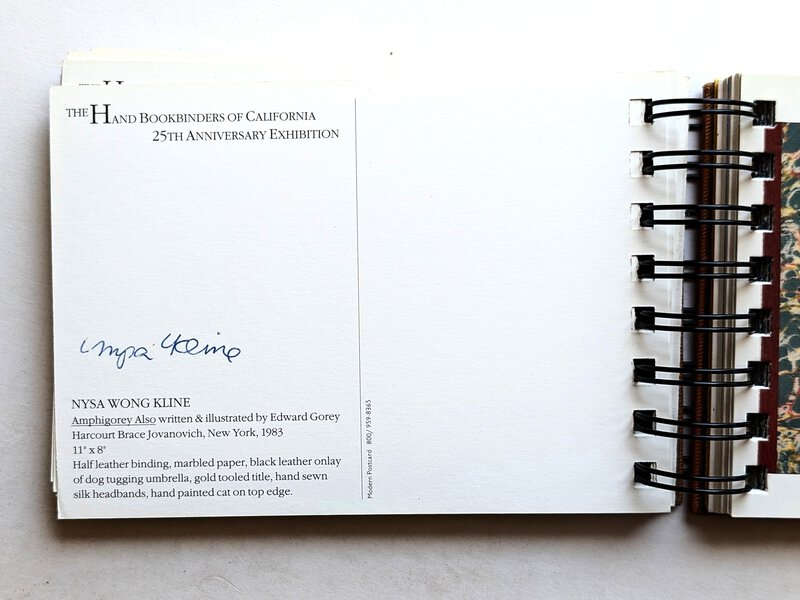 THE HAND BOOKBINDERS OF CALIFORNIA
25TH ANNIVERSARY EXHIBITION
Nysa Kline
NYSA WONG KLINE
Amphigorey Also written & illustrated by Edward Gorey
Harcourt Brace Jovanovich, New York, 1983
11" x 8"
Half leather binding, marbled paper, black leather onlay
of dog tugging umbrella, gold tooled title, hand sewn
silk headbands, hand painted cat on top edge.
Modern Postcard 800/959-8365